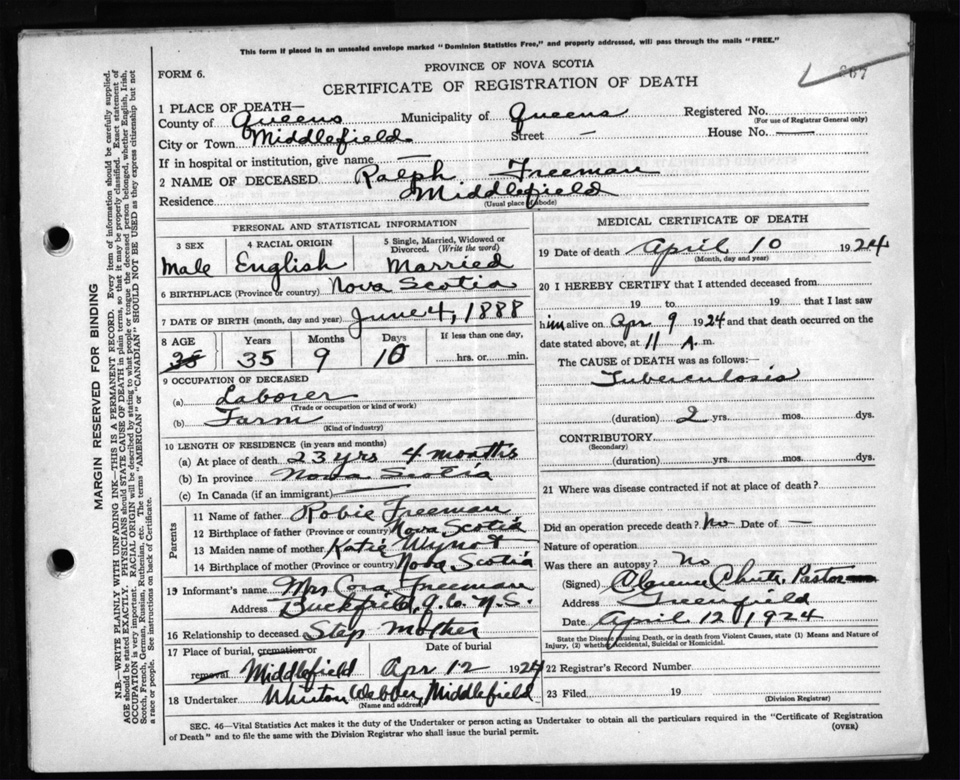 This form if placed in an unsealed envelope marked "Dominion Statistics Free," and properly addressed, will pass through the mails "FREE."
PROVINCE OF NOVA SCOTIA
FORM 6.
CERTIFICATE OF REGISTRATION OF DEATH
1 PLACE OF DEATH—
County of Queens Municipality of Queens Registered No.
(For use of Registrar General only)
City or Town Middlefield Street — House No. —
If in hospital or institution, give name —
2 NAME OF DECEASED Ralph Freeman
Residence Middlefield
(Usual place of abode)
PERSONAL AND STATISTICAL INFORMATION
3 SEX 4 RACIAL ORIGIN 5 Single, Married, Widowed or Divorced. (Write the word)
Male English Married
6 BIRTHPLACE (Province or country) Nova Scotia
7 DATE OF BIRTH (month, day and year) June 4, 1888
8 AGE Years Months Days If less than one day,
35 35 9 10 hrs. or min.
9 OCCUPATION OF DECEASED
(a) Laborer
(Trade or occupation or kind of work)
(b) Farm
(Kind of industry)
10 LENGTH OF RESIDENCE (in years and months)
(a) At place of death 23 yrs 4 months
(b) In province Nova Scotia
(c) In Canada (if an immigrant) —
Parents
11 Name of father Robie Freeman
12 Birthplace of father (Province or country) Nova Scotia
13 Maiden name of mother Katie Wynot
14 Birthplace of mother (Province or country) Nova Scotia
15 Informant's name Mrs Cora Freeman
Address Buckfield, Q. Co. N.S.
16 Relationship to deceased Step Mother
17 Place of burial, cremation or removal Date of burial
Middlefield Apr 12 1924
18 Undertaker Winston Webber, Middlefield
(Name and address)
MEDICAL CERTIFICATE OF DEATH
19 Date of death April 10 1924
(Month, day and year)
20 I HEREBY CERTIFY that I attended deceased from
19 to 19 that I last saw
him alive on Apr 9 1924 and that death occurred on
date stated above, at 11 A. m.
The CAUSE of DEATH was as follows:—
Tuberculosis
(duration) 2 yrs. mos. dys.
CONTRIBUTORY
(Secondary)
(duration) yrs. mos. dys.
21 Where was disease contracted if not at place of death?
Did an operation precede death? No Date of —
Nature of operation
Was there an autopsy? No
(Signed) Clarence Chute, Pastor
Address Greenfield
Date April 12 1924
State the Disease causing Death, or in death from Violent Causes, state (1) Means and Nature of
Injury, (2) whether Accidental, Suicidal or Homicidal.
22 Registrar's Record Number
23 Filed 19
(Division Registrar)
SEC. 46—Vital Statistics Act makes it the duty of the Undertaker or person acting as Undertaker to obtain all the particulars required in the "Certificate of Registration
of Death" and to file the same with the Division Registrar who shall issue the burial permit.
(OVER)
MARGIN RESERVED FOR BINDING
N.B.—WRITE PLAINLY WITH UNFADING INK—THIS IS A PERMANENT RECORD. Every item of information should be carefully supplied.
AGE should be stated EXACTLY. PHYSICIANS should STATE CAUSE OF DEATH in plain terms, so that it may be properly classified. Exact statement of
OCCUPATION is very important. RACIAL ORIGIN will be described by stating to what people or tongue the deceased person belonged, whether English, Irish,
Scotch, French, German, Russian, Ruthenian, etc. The terms "AMERICAN" or "CANADIAN" SHOULD NOT BE USED as they express citizenship but not
a race or people. See instructions on back of Certificate.